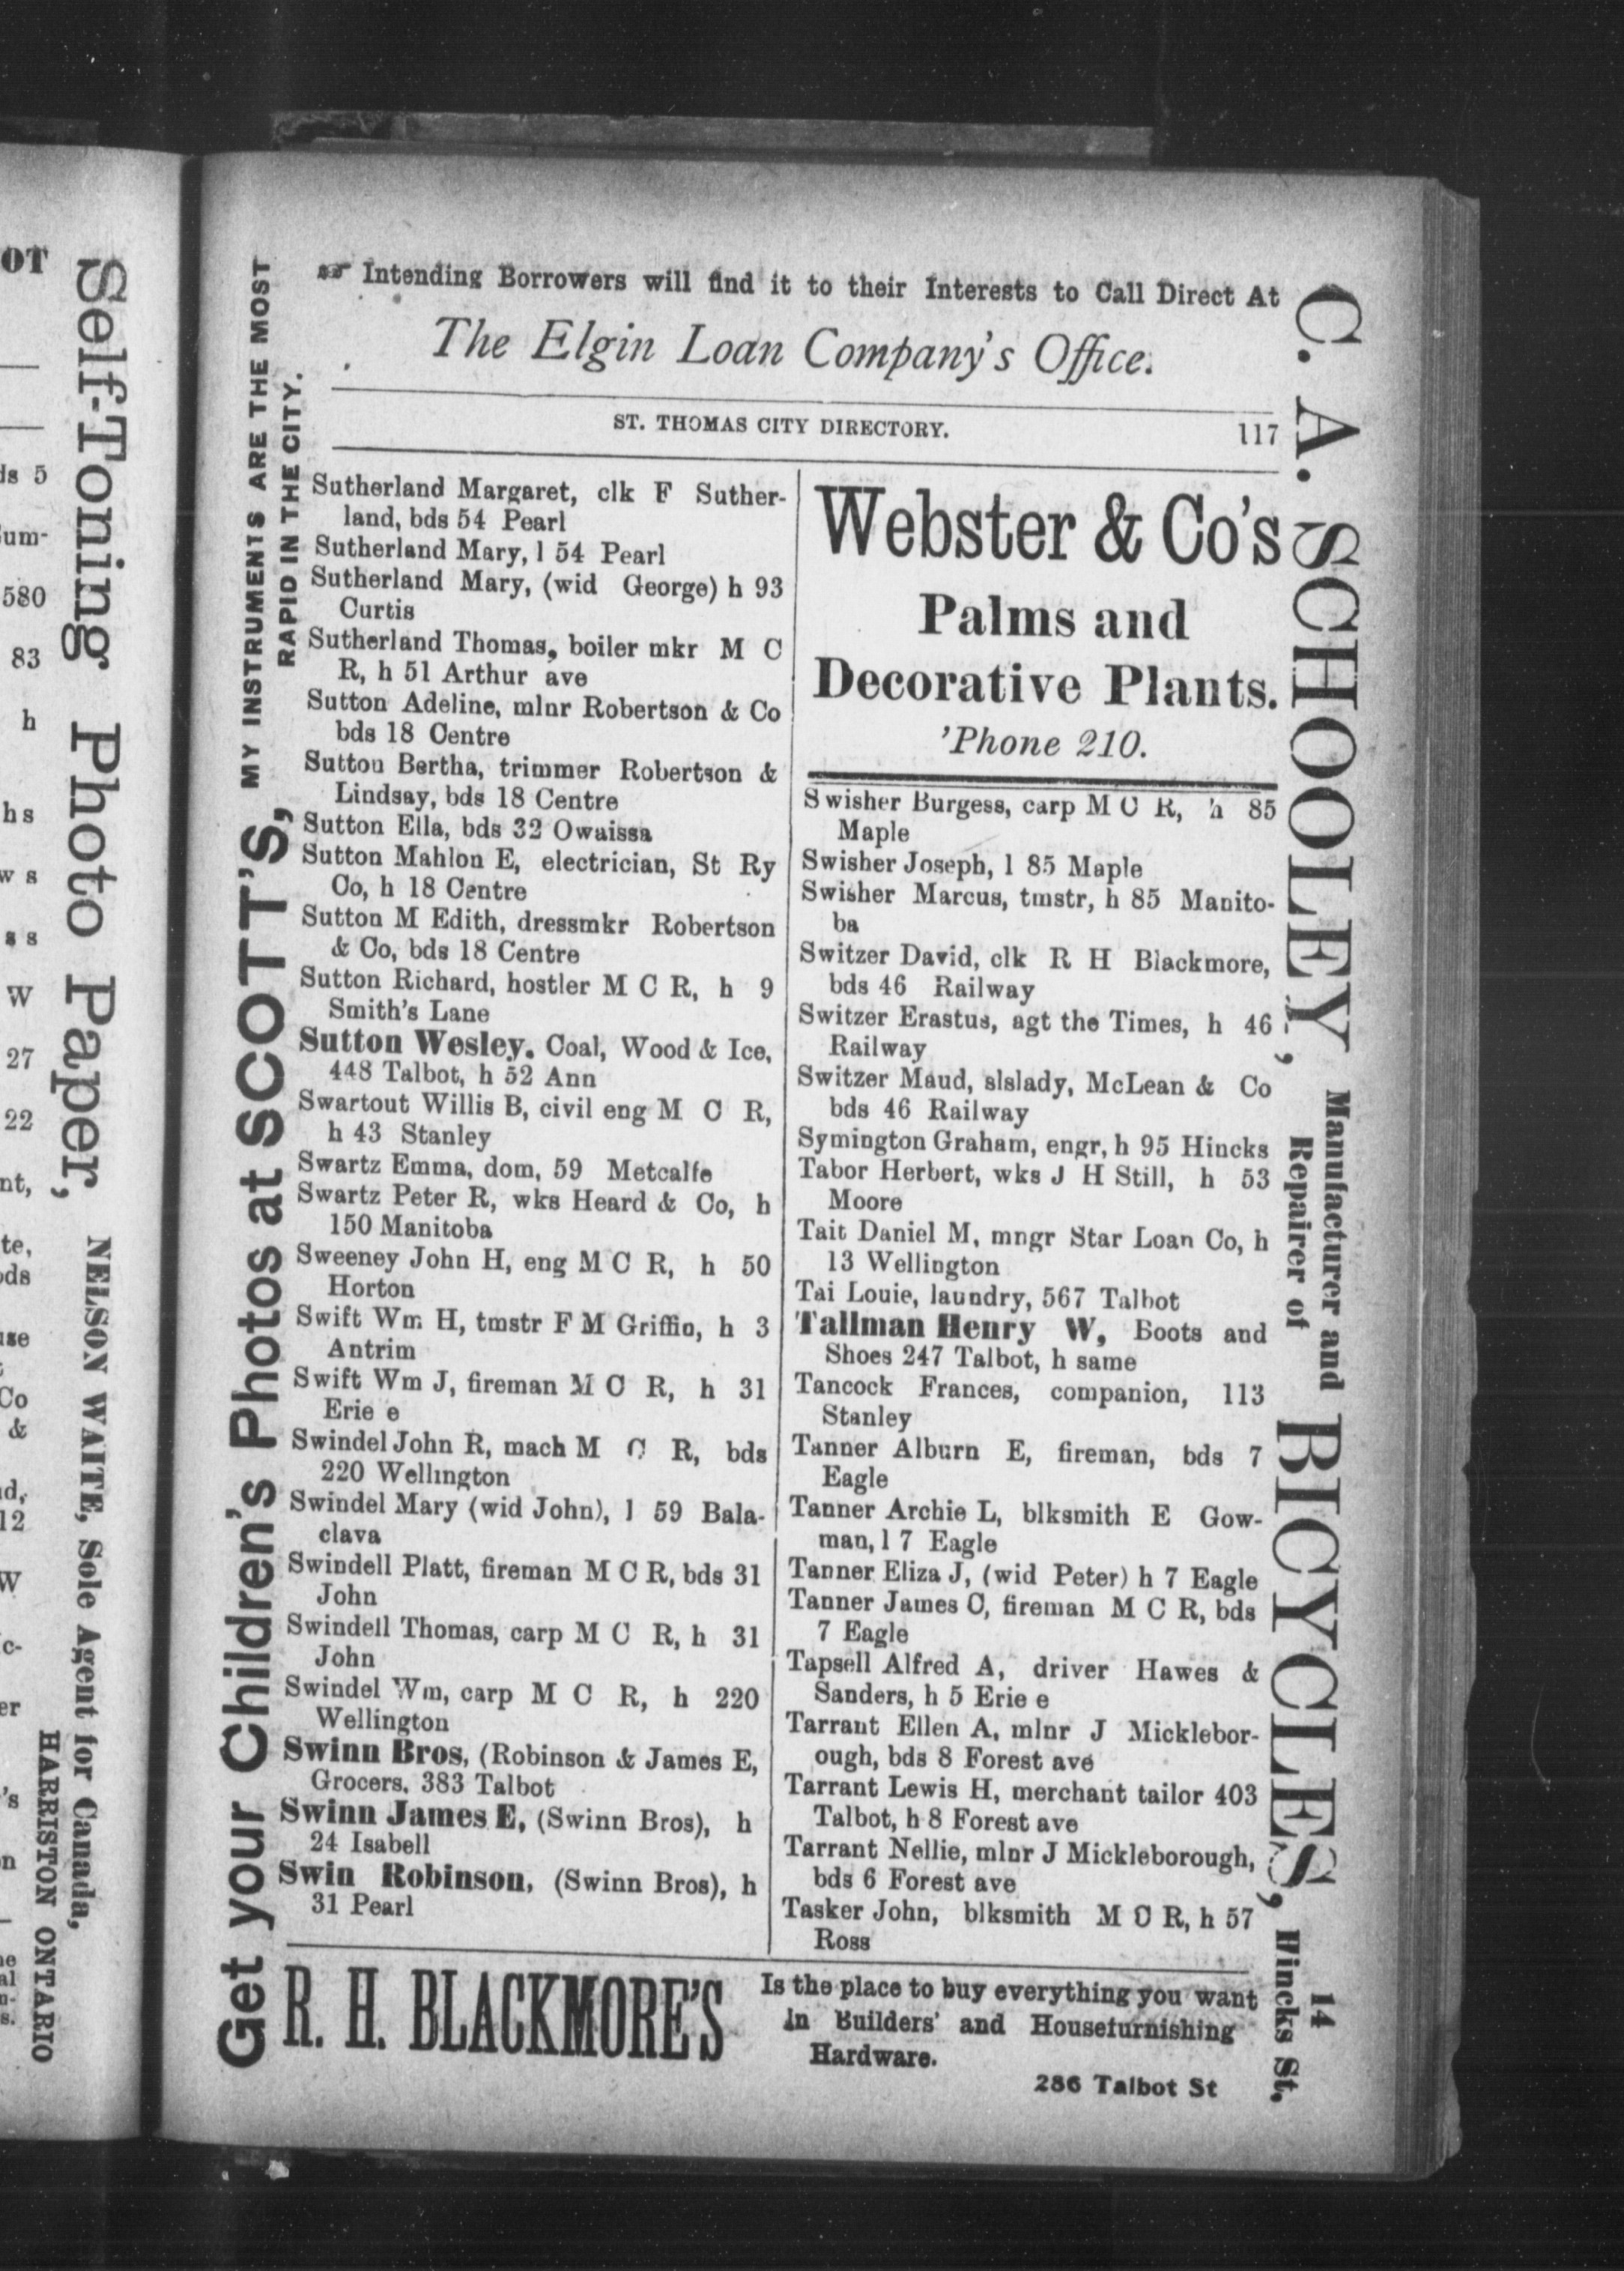 OT
ds 5
um-
580
83
h
hs
ws
ss
W
27
22
nt,
te,
ds
use
Co
&
nd,
12
W
c-
er
's
n
Self-Toning Photo Paper,
NELSON WAITE, Sole Agent for Canada,
HARRISTON ONTARIO
Get your Children's Photos at SCOTT'S,
MY INSTRUMENTS ARE THE MOST
RAPID IN THE CITY.
☞ Intending Borrowers will find it to their Interests to Call Direct At
The Elgin Loan Company's Office.
ST. THOMAS CITY DIRECTORY. 117
Sutherland Margaret, clk F Suther-
land, bds 54 Pearl
Sutherland Mary, l 54 Pearl
Sutherland Mary, (wid George) h 93
Curtis
Sutherland Thomas, boiler mkr M C
R, h 51 Arthur ave
Sutton Adeline, mlnr Robertson & Co
bds 18 Centre
Suttou Bertha, trimmer Robertson &
Lindsay, bds 18 Centre
Sutton Ella, bds 32 Owaissa
Sutton Mahlon E, electrician, St Ry
Co, h 18 Centre
Sutton M Edith, dressmkr Robertson
& Co, bds 18 Centre
Sutton Richard, hostler M C R, h 9
Smith's Lane
Sutton Wesley. Coal, Wood & Ice,
448 Talbot, h 52 Ann
Swartout Willis B, civil eng M C R,
h 43 Stanley
Swartz Emma, dom, 59 Metcalfe
Swartz Peter R, wks Heard & Co, h
150 Manitoba
Sweeney John H, eng M C R, h 50
Horton
Swift Wm H, tmstr F M Griffin, h 3
Antrim
Swift Wm J, fireman M C R, h 31
Erie e
Swindel John R, mach M C R, bds
220 Wellington
Swindel Mary (wid John), l 59 Bala-
clava
Swindell Platt, fireman M C R, bds 31
John
Swindell Thomas, carp M C R, h 31
John
Swindel Wm, carp M C R, h 220
Wellington
Swinn Bros, (Robinson & James E,
Grocers. 383 Talbot
Swinn James E, (Swinn Bros), h
24 Isabell
Swin Robinson, (Swinn Bros), h
31 Pearl
Webster & Co's
Palms and
Decorative Plants.
'Phone 210.
Swisher Burgess, carp M C R, h 85
Maple
Swisher Joseph, l 85 Maple
Swisher Marcus, tmstr, h 85 Manito-
ba
Switzer David, clk R H Blackmore,
bds 46 Railway
Switzer Erastus, agt the Times, h 46
Railway
Switzer Maud, slslady, McLean & Co
bds 46 Railway
Symington Graham, engr, h 95 Hincks
Tabor Herbert, wks J H Still, h 53
Moore
Tait Daniel M, mngr Star Loan Co, h
13 Wellington
Tai Louie, laundry, 567 Talbot
Tallman Henry W, Boots and
Shoes 247 Talbot, h same
Tancock Frances, companion, 113
Stanley
Tanner Alburn E, fireman, bds 7
Eagle
Tanner Archie L, blksmith E Gow-
man, l 7 Eagle
Tanner Eliza J, (wid Peter) h 7 Eagle
Tanner James C, fireman M C R, bds
7 Eagle
Tapsell Alfred A, driver Hawes &
Sanders, h 5 Erie e
Tarrant Ellen A, mlnr J Micklebor-
ough, bds 8 Forest ave
Tarrant Lewis H, merchant tailor 403
Talbot, h 8 Forest ave
Tarrant Nellie, mlnr J Mickleborough,
bds 6 Forest ave
Tasker John, blksmith M C R, h 57
Ross
R. H. BLACKMORE'S
Is the place to buy everything you want
in Builders' and Housefurnishing
Hardware.
286 Talbot St
C. A. SCHOOLEY,
Manufacturer and
Repairer of
BICYCLES,
14
Hincks St,